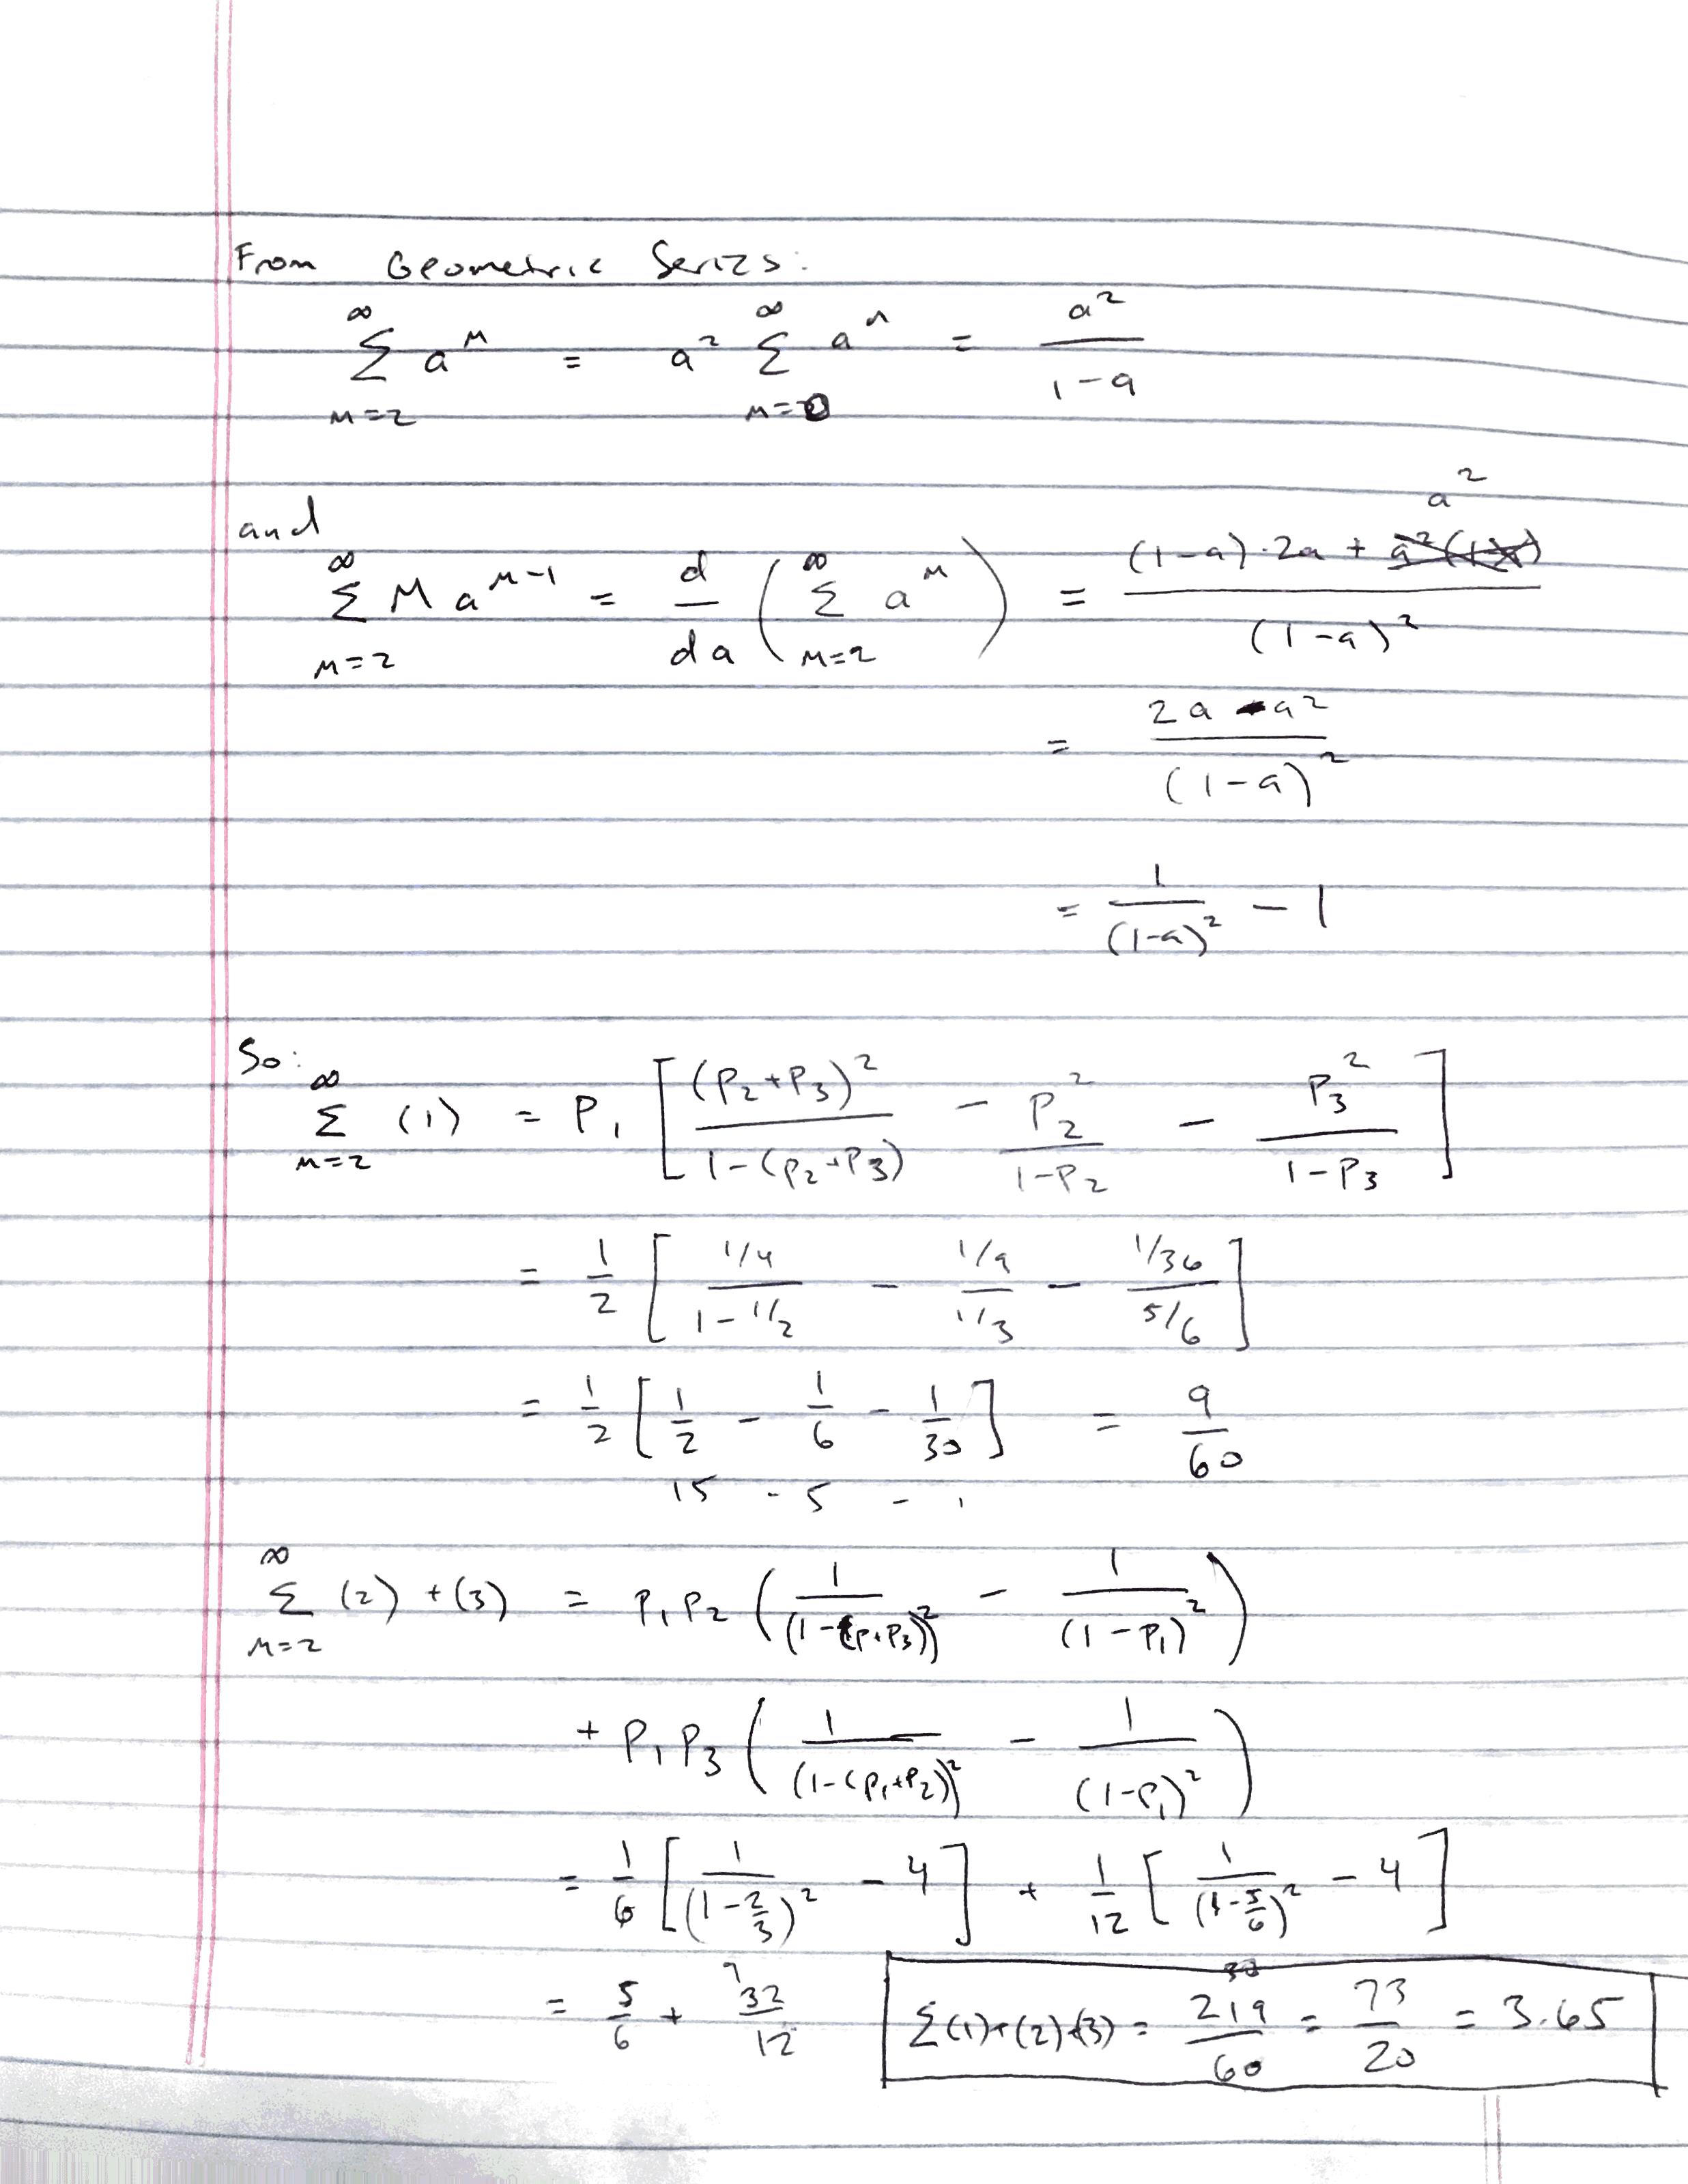 From Geometric Series:
∞ Σ M=2 a^M = a² ∞ Σ M=0 a^M = a² / (1-a)
and
∞ Σ M=2 M a^(M-1) = d/da ( ∞ Σ M=2 a^M ) = ((1-a)·2a + a²) / (1-a)²
= (2a - a²) / (1-a)²
= 1/(1-a)² - 1
So:
∞ Σ M=2 (1) = P₁ [ (P₂+P₃)² / (1-(P₂+P₃)) - P₂² / (1-P₂) - P₃² / (1-P₃) ]
= 1/2 [ (1/4) / (1-1/2) - (1/9) / (1/3) - (1/36) / (5/6) ]
= 1/2 [ 1/2 - 1/6 - 1/30 ] = 9/60
15 - 5 - 1
∞ Σ M=2 (2) + (3) = P₁P₂ ( 1/(1-(P+P₃))² - 1/(1-P₁)² )
+ P₁P₃ ( 1/(1-(P₁+P₂))² - 1/(1-P₁)² )
= 1/6 [ 1/(1-2/3)² - 4 ] + 1/12 [ 1/(1-5/6)² - 4 ]
= 5/6 + 32/12 Σ(1)+(2)+(3) = 219/60 = 73/20 = 3.65